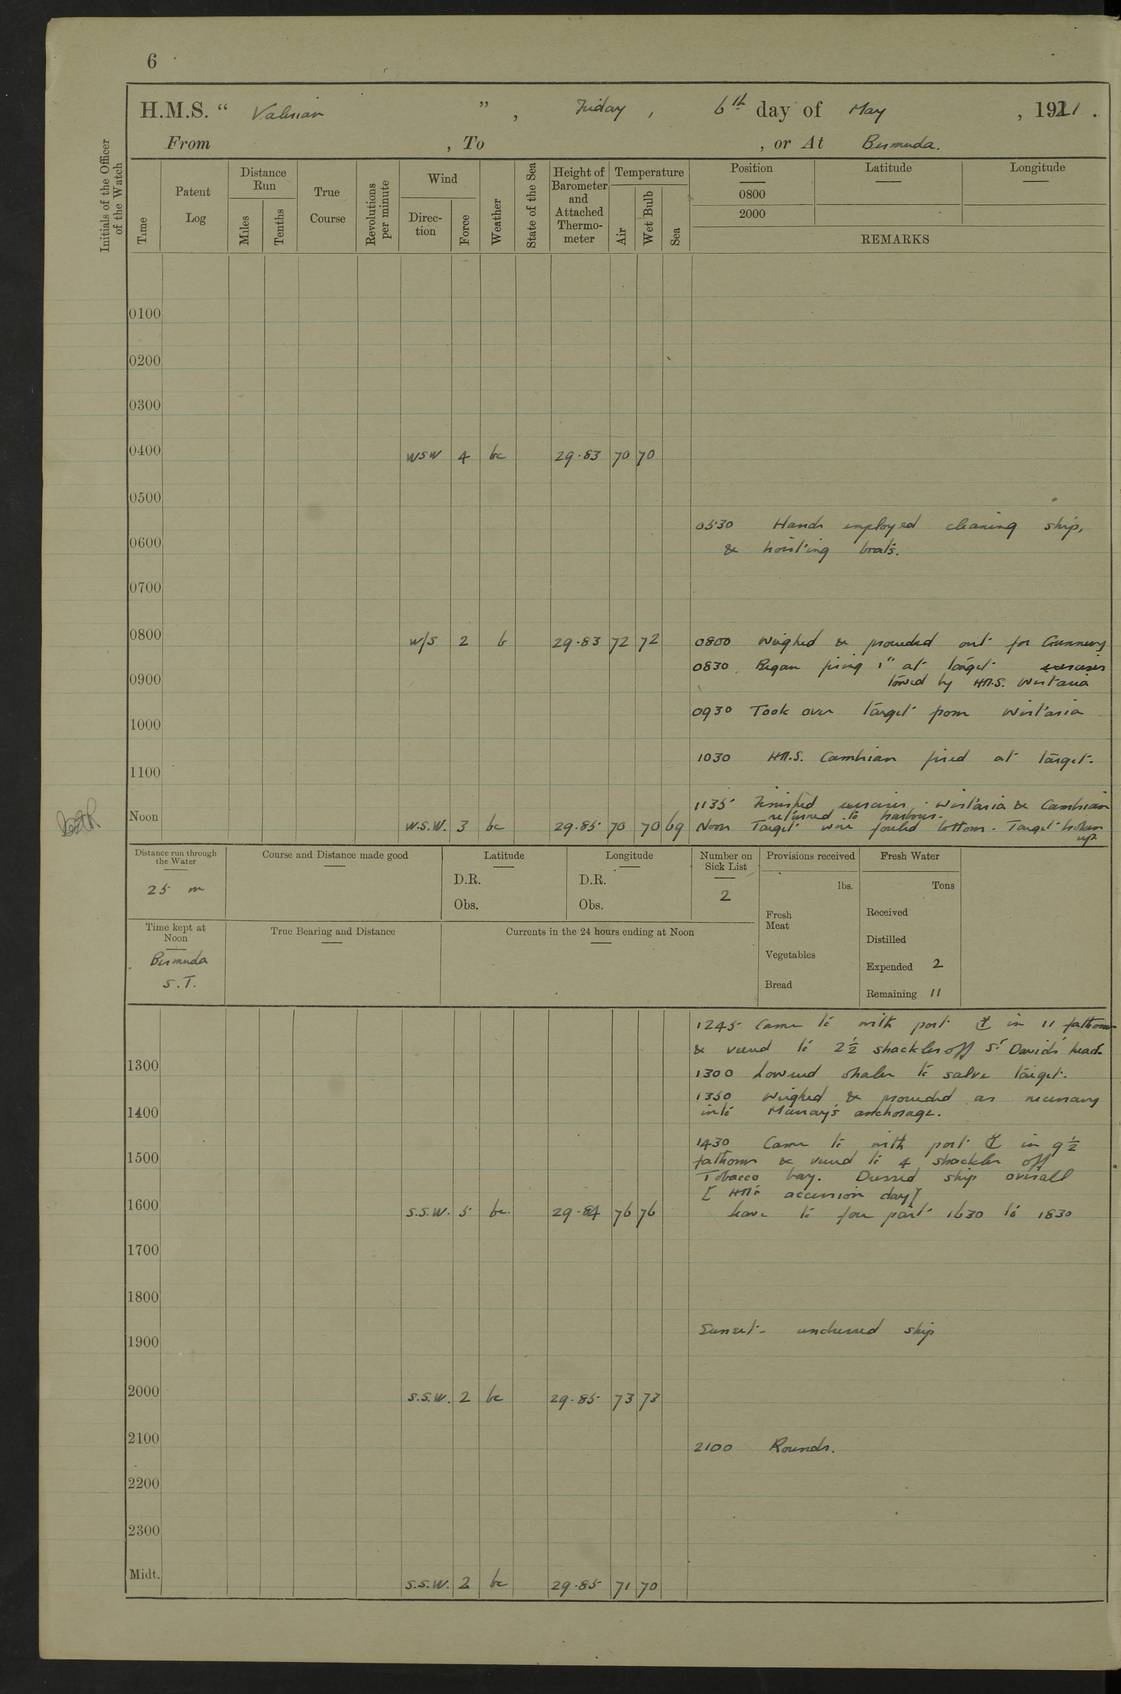 6
H.M.S. “ Valerian ” , Friday , 6th day of May , 1921 .
From , To , or At Bermuda.
Initials of the Officer of the Watch
Time
Patent Log
Distance Run
Miles
Tenths
True Course
Revolutions per minute
Wind
Direc-tion
Force
Weather
State of the Sea
Height of Barometer and Attached Thermo-meter
Temperature
Air
Wet Bulb
Sea
Position
0800
2000
Latitude
Longitude
REMARKS
0100
0200
0300
0400 WSW 4 bc 29.83 70 70
0500
0530 Hands employed cleaning ship,
& hoisting boats.
0600
0700
0800 W/S 2 b 29.83 72 72 0800 Weighed & proceeded out for Gunnery
exercises
0830 Began firing 1" at target
towed by H.M.S. Wistaria
0900
0930 Took over target from Wistaria
1000
1030 H.M.S. Cambrian fired at target.
1100
1135 Finished exercises. Wistaria & Cambrian
returned to harbour.
Noon W.S.W. 3 bc 29.85 70 70 69 Noon Target wire fouled bottom. Target broken
up.
Distance run through the Water
25 m
Course and Distance made good
Latitude
D.R.
Obs.
Longitude
D.R.
Obs.
Number on Sick List
2
Provisions received
lbs.
Fresh Meat
Vegetables
Bread
Fresh Water
Tons
Received
Distilled
Expended 2
Remaining 11
Time kept at Noon
Bermuda
S.T.
True Bearing and Distance
Currents in the 24 hours ending at Noon
1245 Came to with port ⚓ in 11 fathoms
& veered to 2½ shackles off St Davids head.
1300
1300 Lowered whaler to salve target.
1350 Weighed & proceeded as necessary
into Murray's anchorage.
1400
1430 Came to with port ⚓ in 9½
fathoms & veered to 4 shackles off
1500
Tobacco bay. Dressed ship overall
[ HM's accession day]
1600 S.S.W. 5 bc. 29.84 76 76 leave to four part 1630 to 1830
1700
1800
Sunset. undressed ship
1900
2000 S.S.W. 2 bc 29.85 73 73
2100
2100 Rounds.
2200
2300
Midt. S.S.W. 2 bc 29.85 71 70